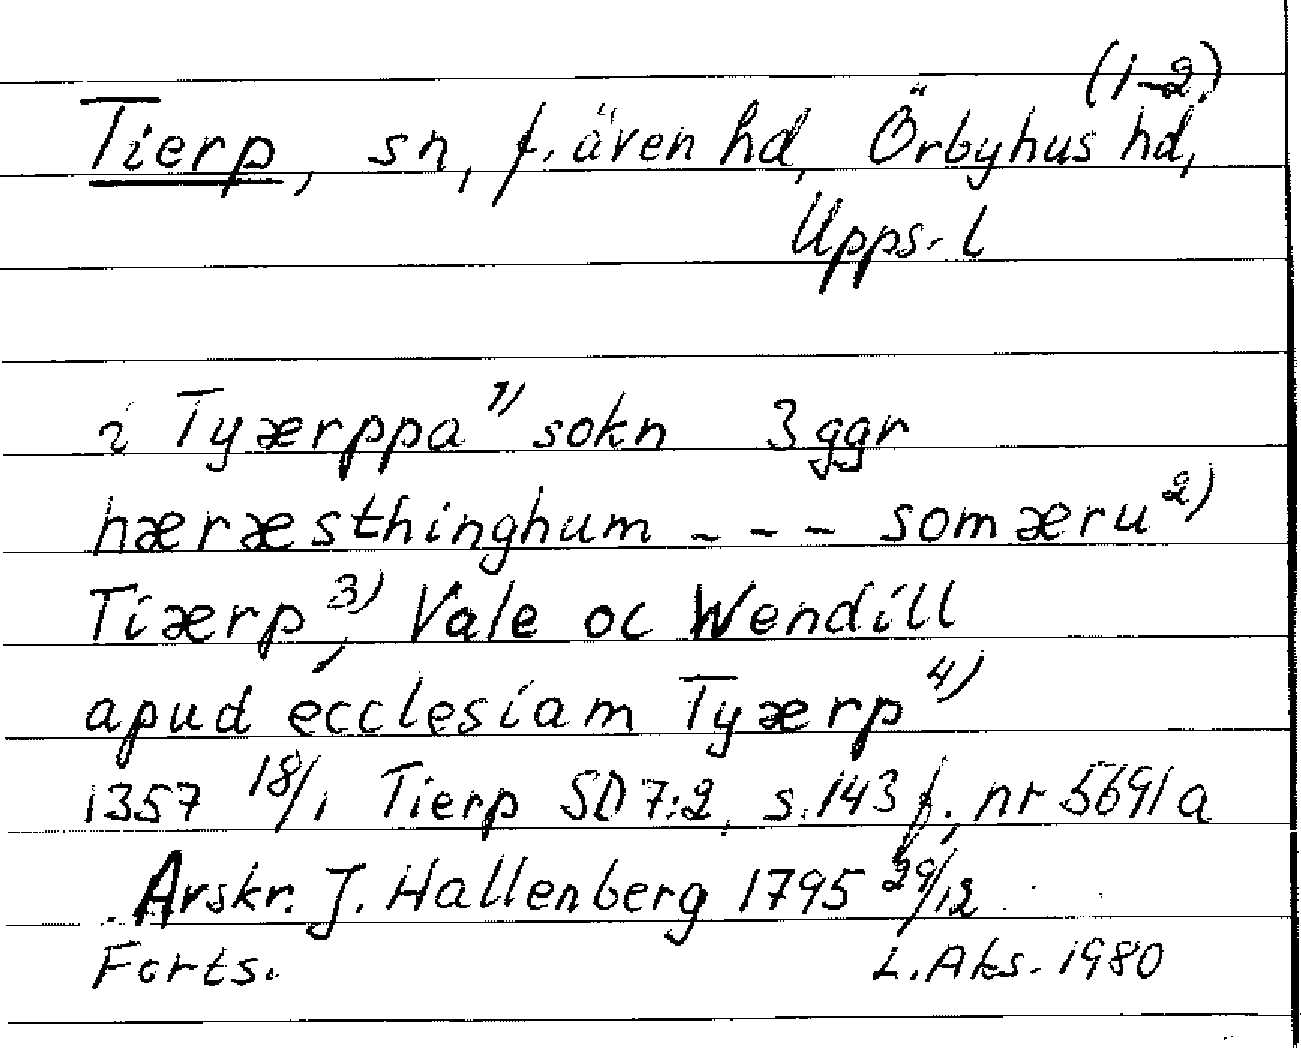 (1-2)
Tierp, sn, f. även hd, Örbyhus hd,
Upps. l
i Tyærppa 1) sokn 3 ggr
hæræsthinghum - - - som æru 2)
Tiærp 3), Vale oc Wendill
apud ecclesiam Tyærp 4)
1357 18/1 Tierp SD 7:2, s. 143 f., nr 5691 a
Avskr. J. Hallenberg 1795 29/12
Forts. L. Aks. 1980